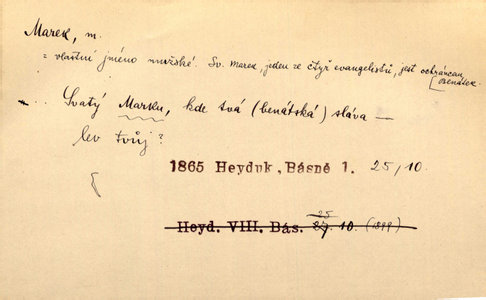 Marek, m.
= vlastní jméno mužské. Sv. Marek, jeden ze čtyř evangelistů, jest ochráncem
Benátek
... Svatý Marku, kde tvá (benátská) sláva —
lev tvůj?
1865 Heyduk, Básně 1. 25, 10.
Heyd. VIII. Bás. 25 27. 10 (1899)